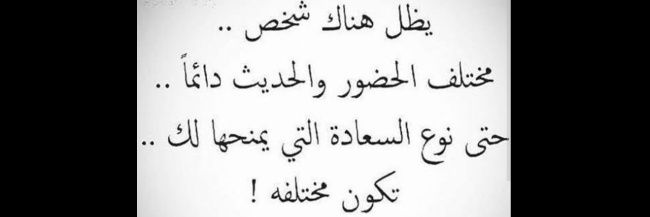 يظل هناك شخص ..
مختلف الحضور والحديث دائماً ..
حتى نوع السعادة التي يمنحها لك ..
تكون مختلفه !